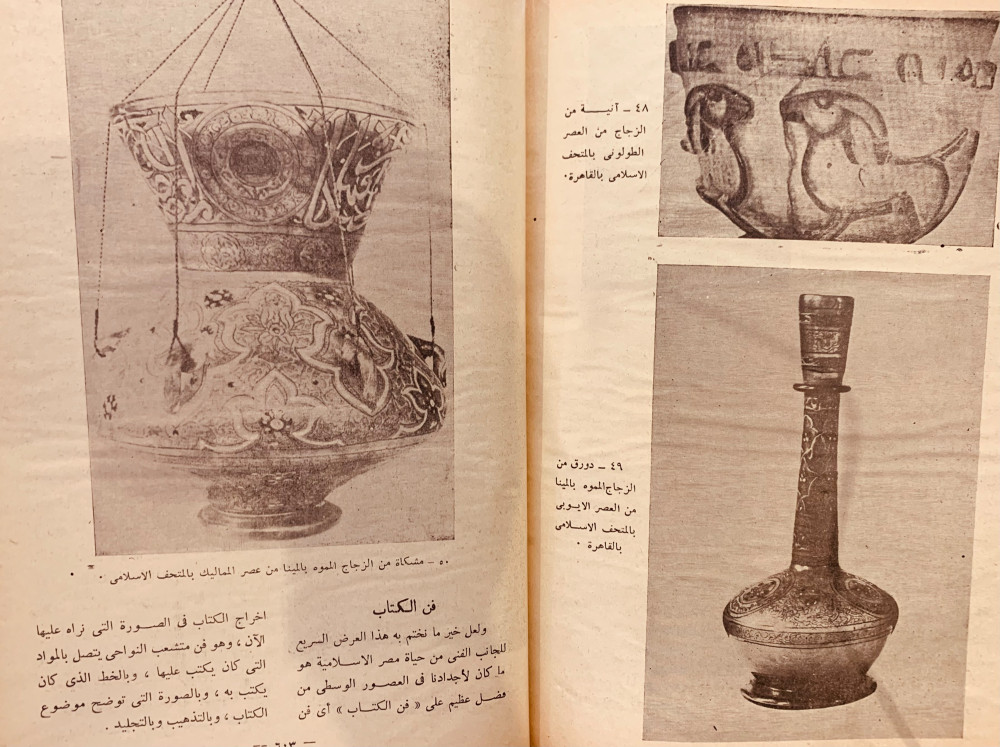 ٤٨ ــ آنيـــة من
الزجاج من العصر
الطولونى بالمتحف
الاسلامى بالقاهرة٠
٤٩ ــ دورق من
الزجاج المموه بالمينا
من العصر الايوبى
بالمتحف الاسلامى
بالقاهرة ٠
٥٠ ــ مشكاة من الزجاج المموه بالمينا من عصر المماليك بالمتحف الاسلامى ٠
فن الكتاب
ولعل خير ما نختم به هذا العرض السريع
للجانب الفنى من حياة مصر الاسلامية هو
ما كان لأجدادنا فى العصور الوسطى من
فضل عظيم على « فن الكتاب » أى فن
اخراج الكتاب فى الصورة التى نراه عليها
الآن ، وهو فن متشعب النواحى يتصل بالمواد
التى كان يكتب عليها ، وبالخط الذى كان
يكتب به ، وبالصورة التى توضح موضوع
الكتاب ، وبالتذهيب وبالتجليد .
— ٦١٣ —